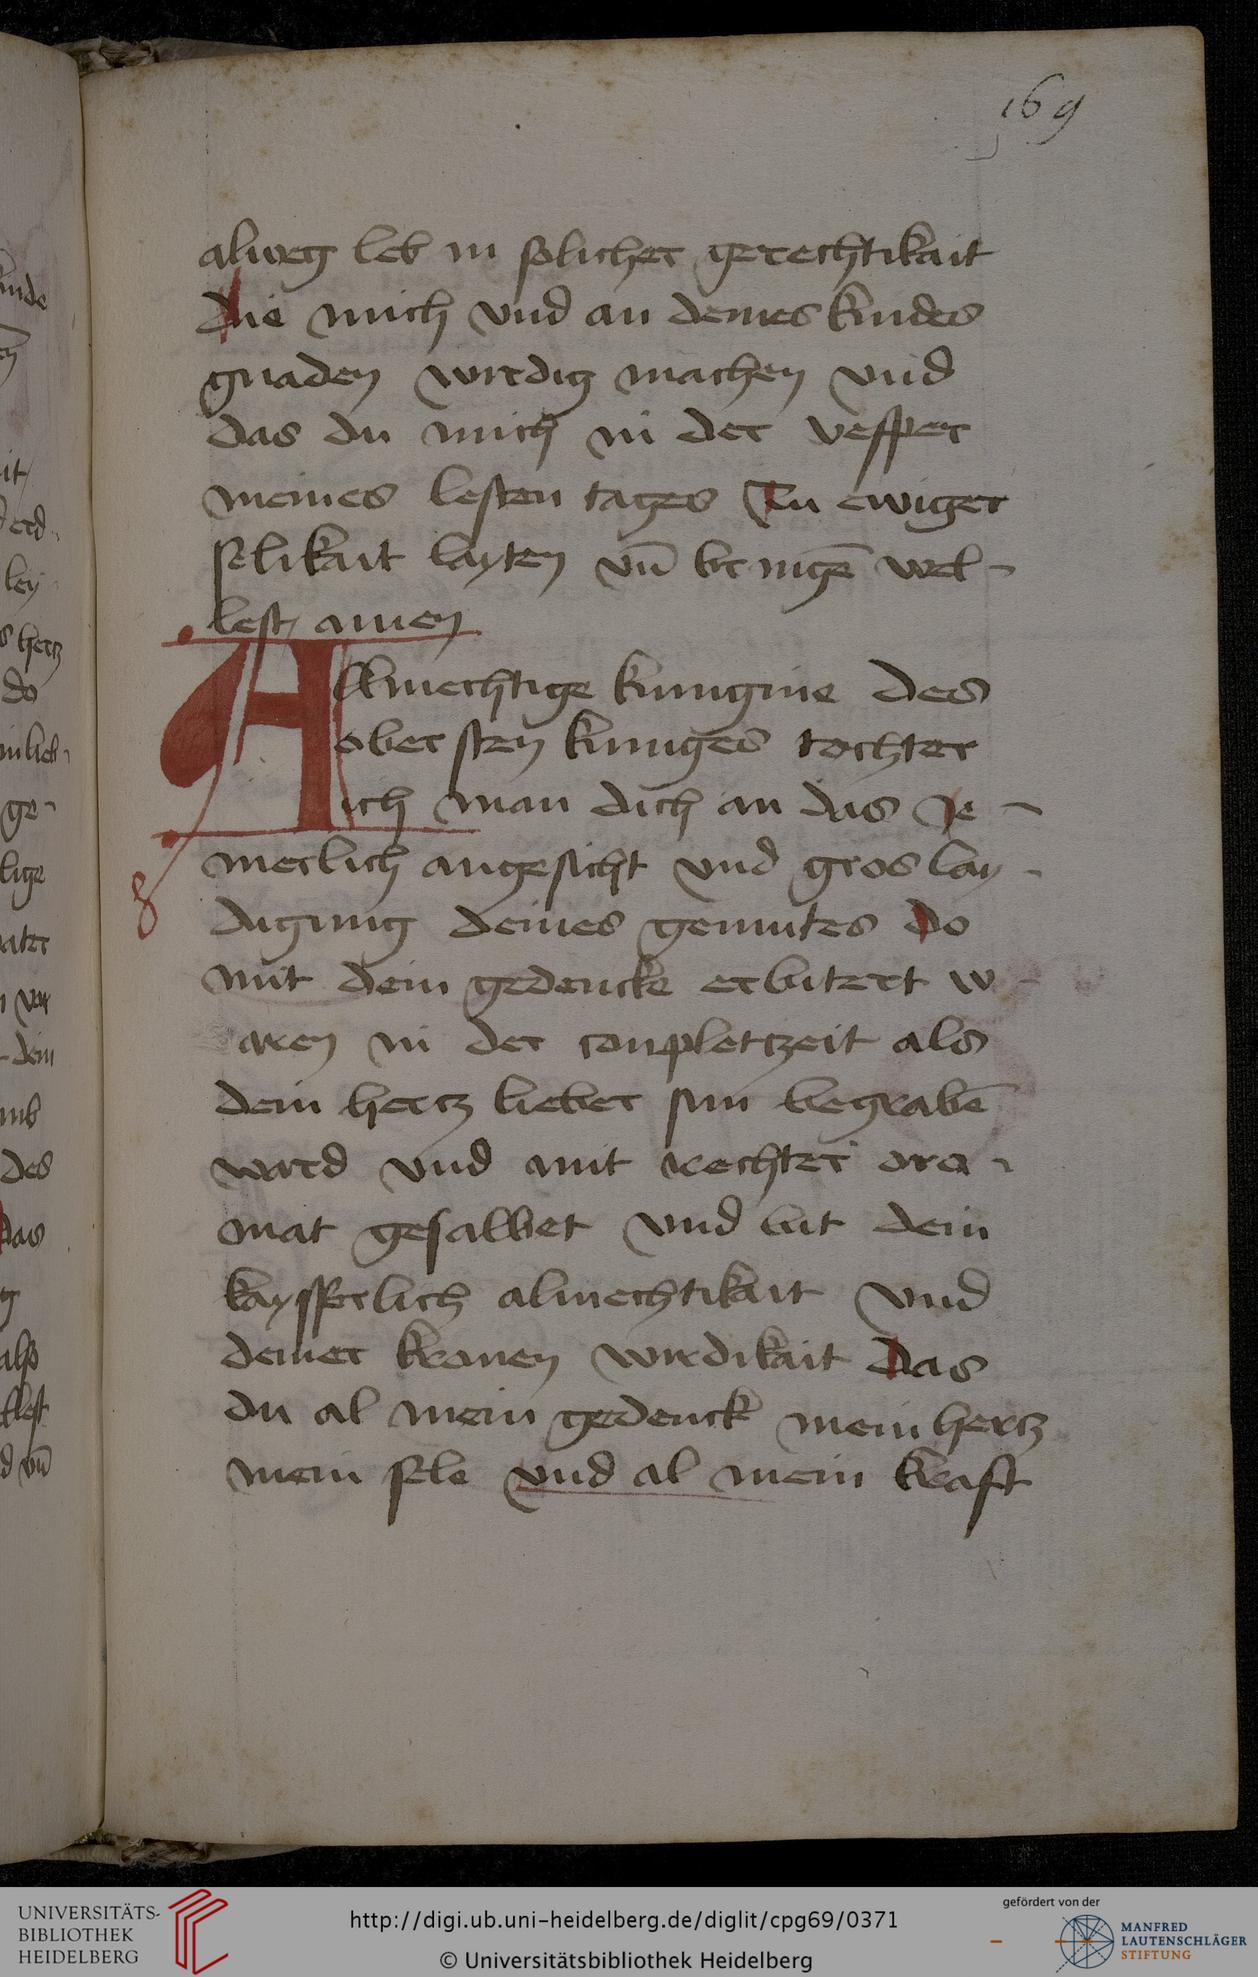 169
alweg leb in solicher gerechtikait
die mich vnd an deines kindes
gnaden wirdig machen vnd
das du mich in der vesper
meines lesten tages Zu ewiger
selikait layten vn̄ bringē wel-
lest amen
Allmechtige kunigine des
obersten kuniges tochter
ich man dich an das Je-
merlich angesicht vnd gros lay-
digung deines gemutes do
mit dein gedencke erbitert w-
aren in der conpletzeit als
dein hertz lieber sun begrabē
ward vnd mit rechter aro-
mat gesalbet vnd bit dein
kaysserlich almechtikait vnd
deiner kronen wirdikait das
du al mein gedenck mein hertz
mein sele vnd al mein kraft
UNIVERSITÄTS-
BIBLIOTHEK
HEIDELBERG
http://digi.ub.uni-heidelberg.de/diglit/cpg69/0371
© Universitätsbibliothek Heidelberg
gefördert von der
MANFRED
LAUTENSCHLÄGER
STIFTUNG